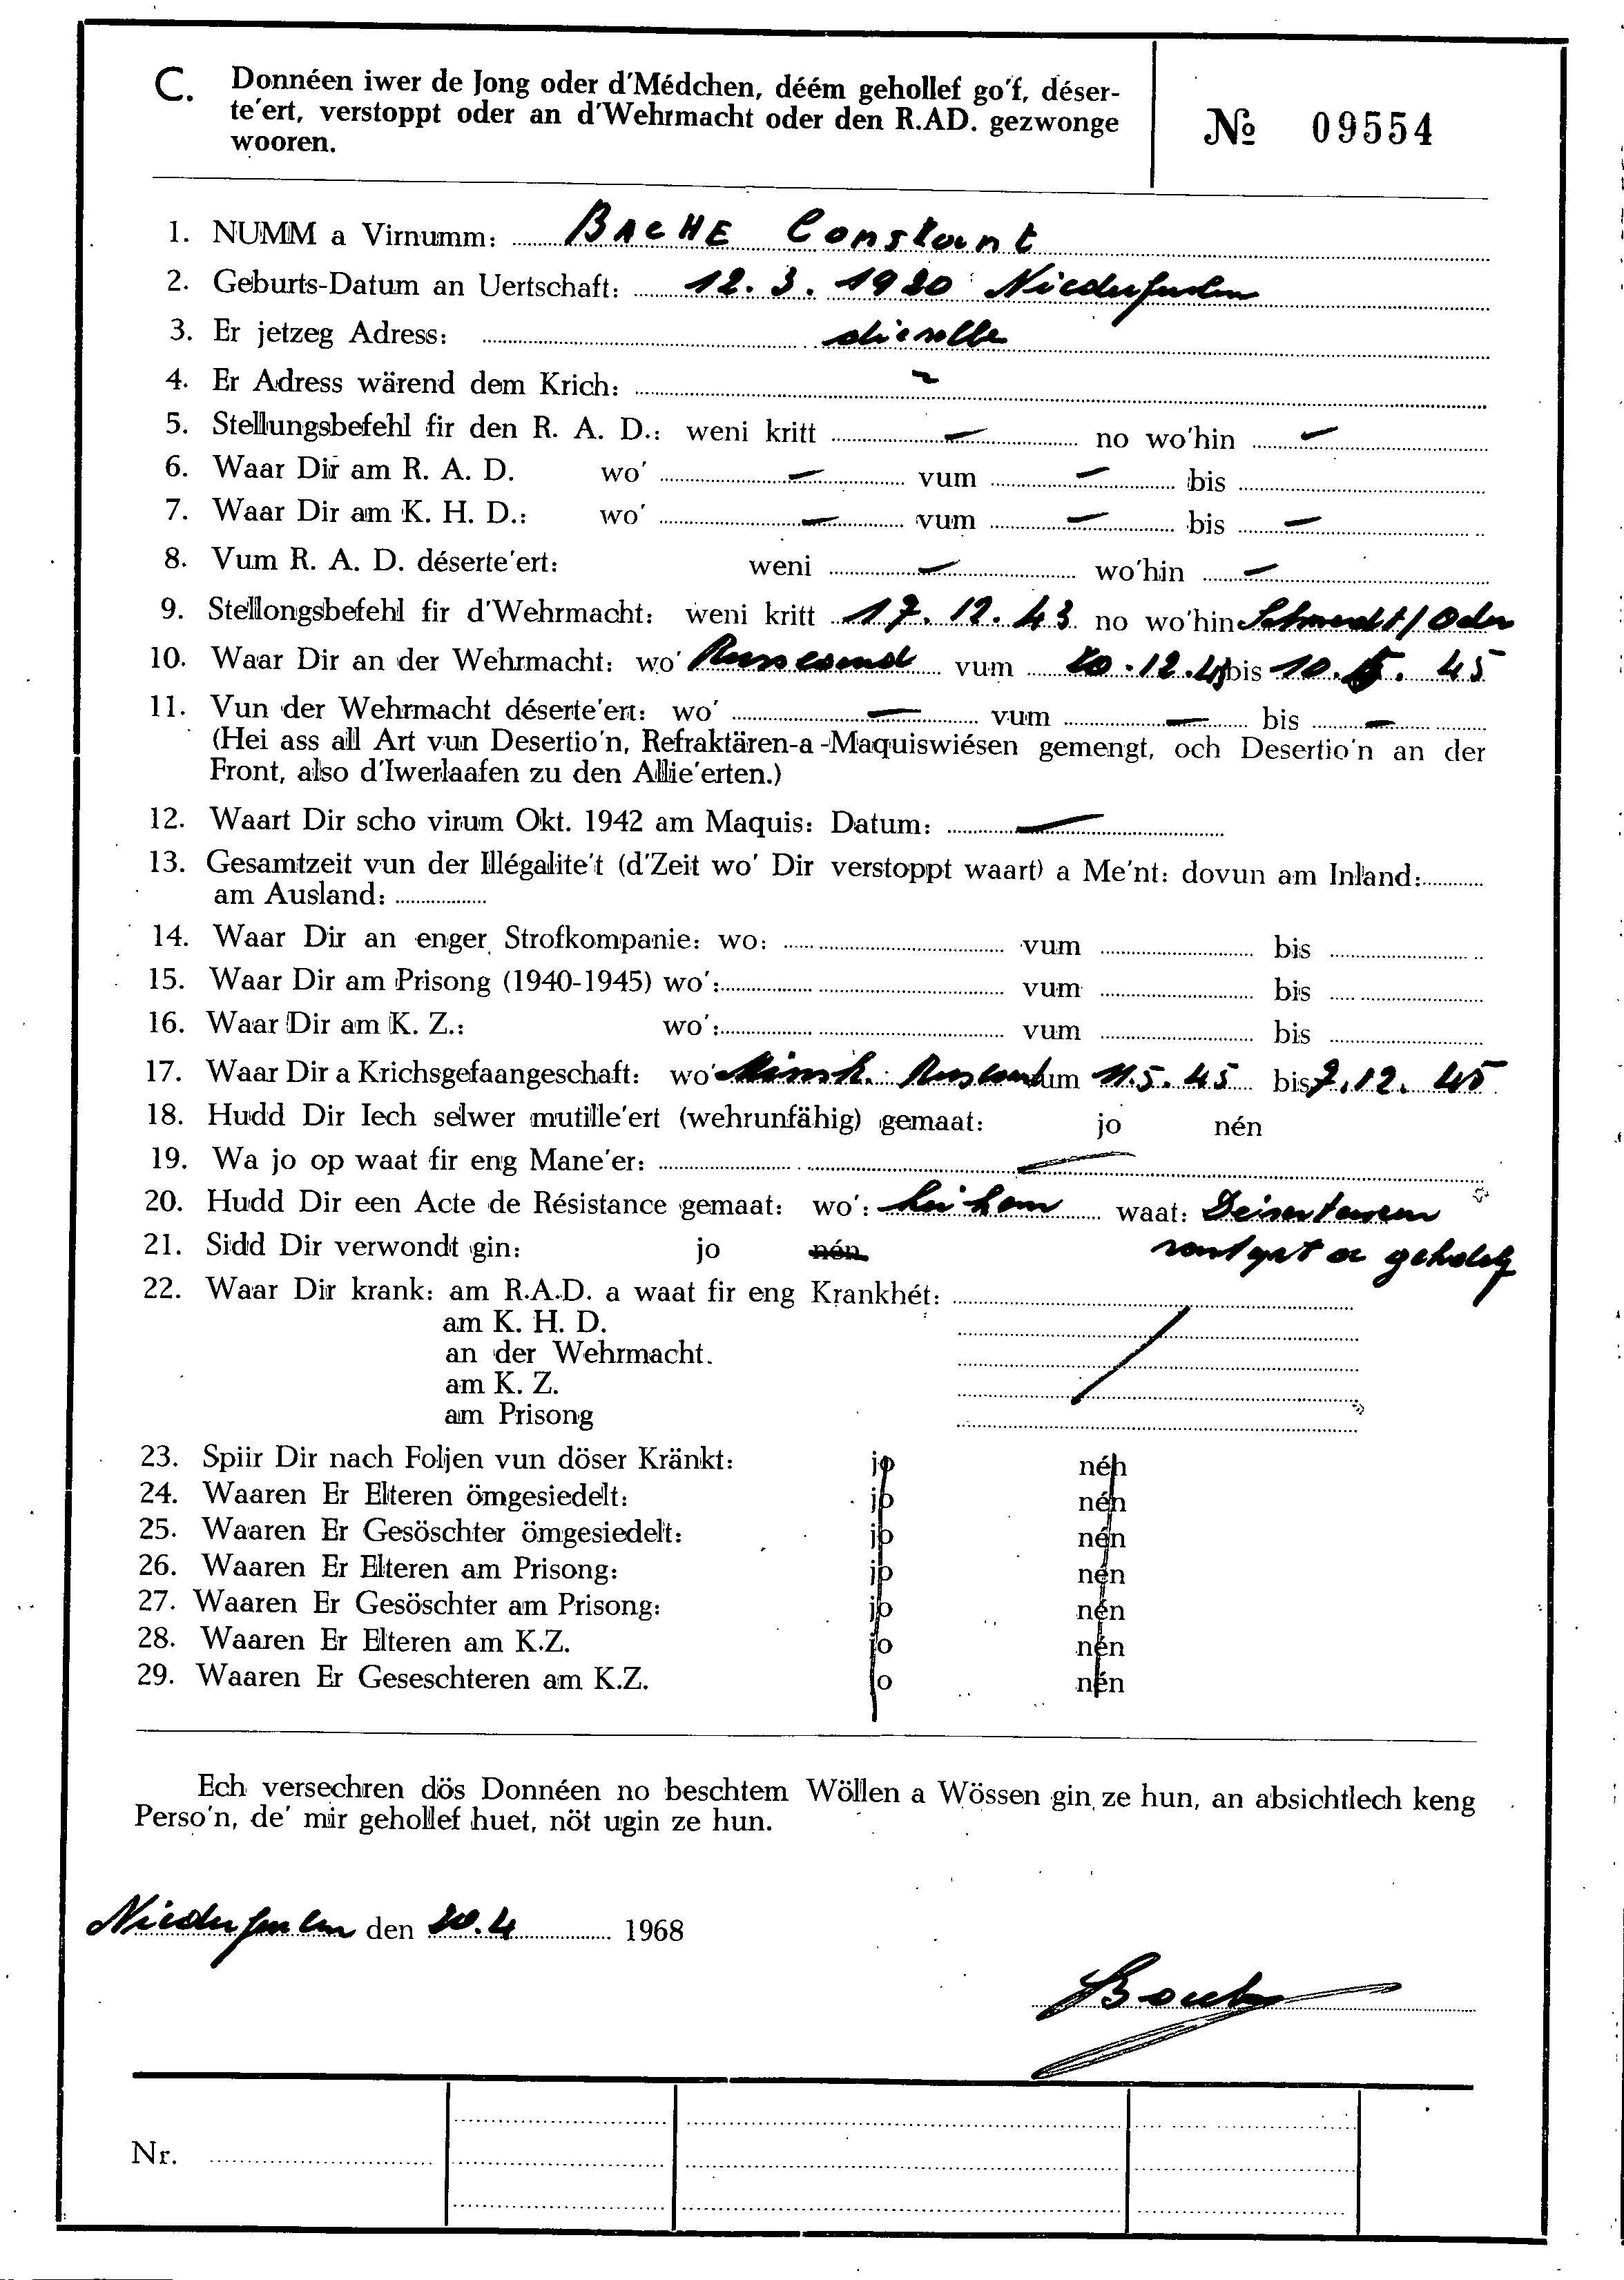 C. Donnéen iwer de Jong oder d'Médchen, déém gehollef go'f, déser-
te'ert, verstoppt oder an d'Wehrmacht oder den R.AD. gezwonge
wooren.
№ 09554
1. NUMM a Virnumm: BACHE Constant
2. Geburts-Datum an Uertschaft: 12. 3. 1920 Niederfeulen
3. Er jetzeg Adress: dieselbe
4. Er Adress wärend dem Krich: -
5. Stellungsbefehl fir den R. A. D.: weni kritt - no wo'hin -
6. Waar Dir am R. A. D. wo' - vum - bis
7. Waar Dir am K. H. D.: wo' - vum - bis -
8. Vum R. A. D. déserte'ert: weni - wo'hin -
9. Stellongsbefehl fir d'Wehrmacht: weni kritt 17. 12. 43 no wo'hin Schwedt / Oder
10. Waar Dir an der Wehrmacht: wo' Russland vum 20. 12. 43 bis 10. 5. 45
11. Vun der Wehrmacht déserte'ert: wo' - vum - bis -
(Hei ass all Art vun Desertio'n, Refraktären-a -Maquiswiésen gemengt, och Desertio'n an der
Front, also d'Iwerlaafen zu den Allie'erten.)
12. Waart Dir scho virum Okt. 1942 am Maquis: Datum: -
13. Gesamtzeit vun der Illégalite't (d'Zeit wo' Dir verstoppt waart) a Me'nt: dovun am Inland:
am Ausland:
14. Waar Dir an enger Strofkompanie: wo: vum bis
15. Waar Dir am Prisong (1940-1945) wo': vum bis
16. Waar Dir am K. Z.: wo': vum bis
17. Waar Dir a Krichsgefaangeschaft: wo' Minsk Russland vum 11. 5. 45 bis 7. 12. 45
18. Hudd Dir Iech selwer mutille'ert (wehrunfähig) gemaat: jo nén
19. Wa jo op waat fir eng Mane'er: -
20. Hudd Dir een Acte de Résistance gemaat: wo': waat:
21. Sidd Dir verwondt gin: jo nén
22. Waar Dir krank: am R.A.D. a waat fir eng Krankhét:
am K. H. D.
an der Wehrmacht.
am K. Z.
am Prisong
23. Spiir Dir nach Foljen vun döser Kränkt: jo nén
24. Waaren Er Elteren ömgesiedelt: jo nén
25. Waaren Er Gesöschter ömgesiedelt: jo nén
26. Waaren Er Elteren am Prisong: jo nén
27. Waaren Er Gesöschter am Prisong: jo nén
28. Waaren Er Elteren am K.Z. jo nén
29. Waaren Er Geseschteren am K.Z. jo nén
Ech versechren dös Donnéen no beschtem Wöllen a Wössen gin ze hun, an absichtlech keng
Perso'n, de' mir gehollef huet, nöt ugin ze hun.
Niederfeulen den 20. 4 1968
Nr.